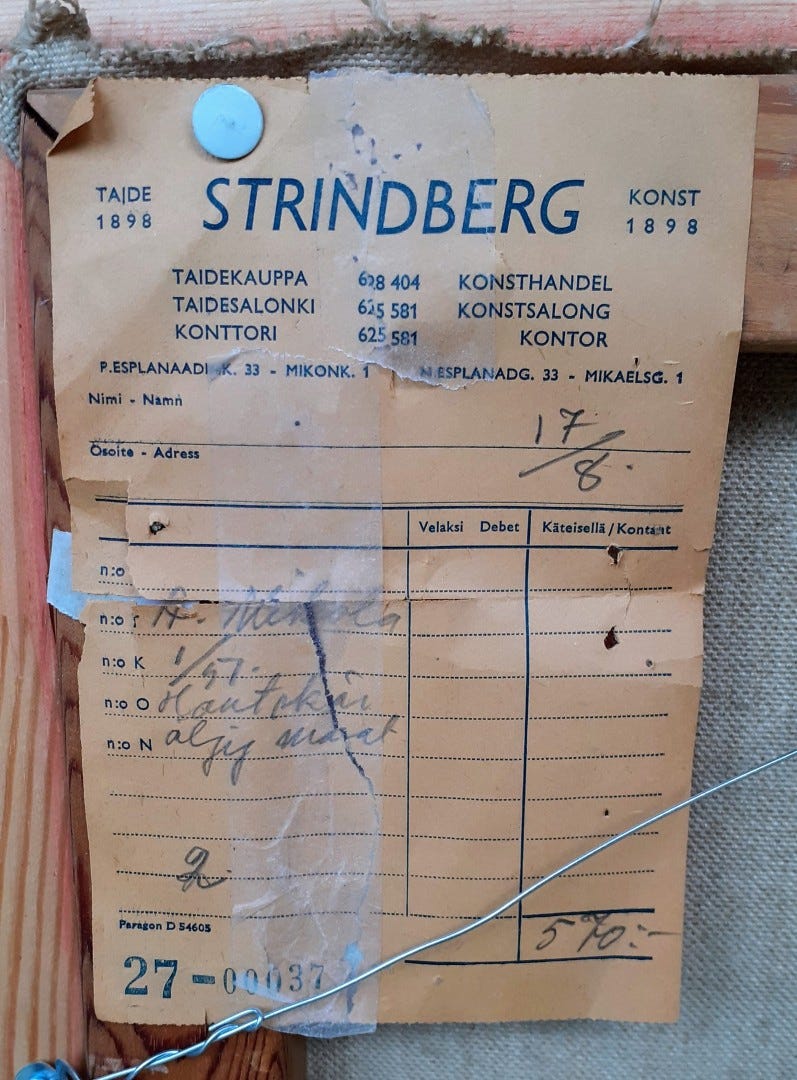 TAIDE STRINDBERG KONST
1898 1898
TAIDEKAUPPA 628 404 KONSTHANDEL
TAIDESALONKI 625 581 KONSTSALONG
KONTTORI 625 581 KONTOR
P.ESPLANAADI K. 33 - MIKONK. 1 N.ESPLANADG. 33 - MIKAELSG. 1
Nimi - Namn
17/8.
Osoite - Adress
Velaksi Debet Käteisellä/Kontant
n:o
n:o A.
n:o K 1/57.
n:o O
n:o N öljy
2
Paragon D 54605
570:-
27-00037